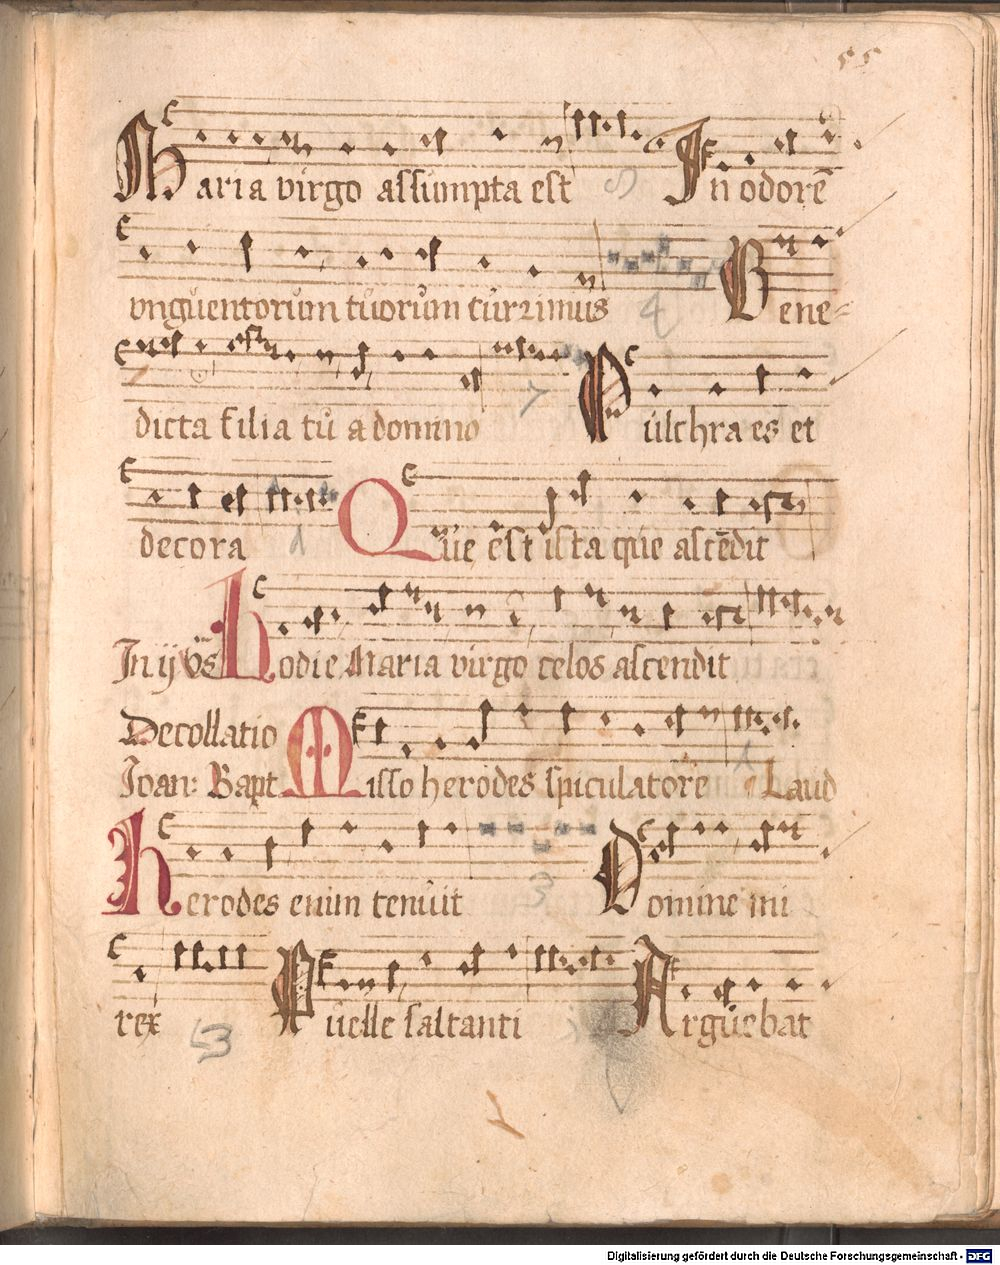 55
Maria virgo assumpta est 8 In odorē
vnguentorum tuorum currimus 4 Bene=
dicta filia tu a domino 7 Pulchra es et
decora 1 Que est ista que ascēdit
In ij Vs̄ hodie Maria virgo celos ascendit
Decollatio
Joan: Bapt Misso herodes spiculatore 1 Laud
herodes enim tenuit 3 Domine mi
rex 3 Puelle saltanti Arguebat
Digitalisierung gefördert durch die Deutsche Forschungsgemeinschaft - DFG